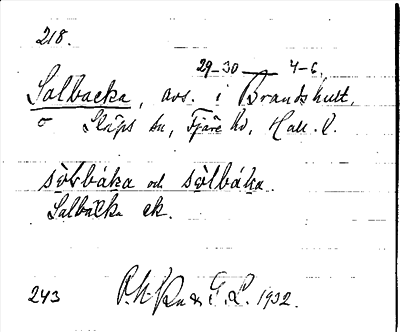 218.
29–30 — 4–6.
Salbacka, avs. i Brandshult,
Släps sn, Fjäre hd, Hall. l.
sǫ̀lbáka och sǫ̀lbáka.
Salbacka ek.
243 &. G. L. 1932.